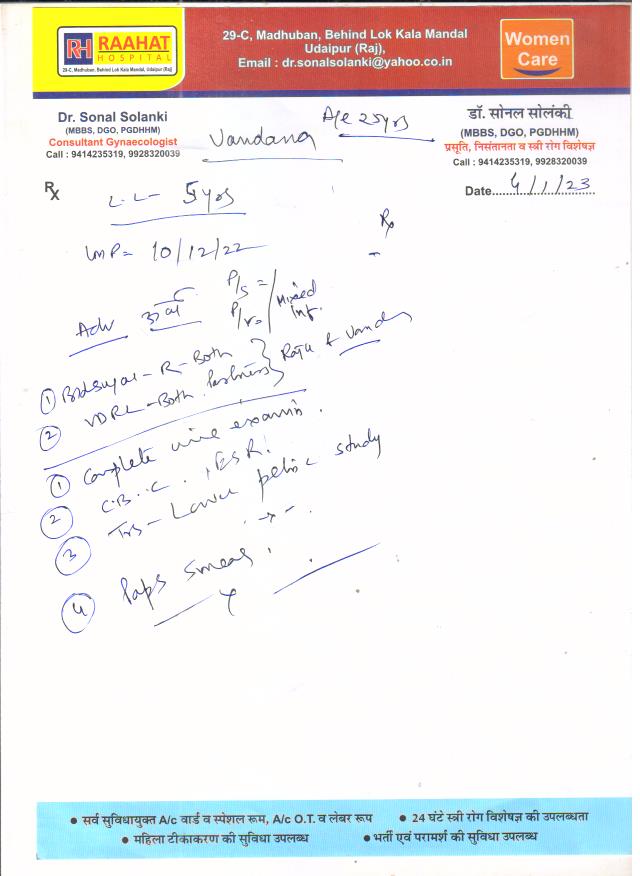 RH RAAHAT
HOSPITAL
29-C, Madhuban, Behind Lok Kala Mandal, Udaipur (Raj)
29-C, Madhuban, Behind Lok Kala Mandal
Udaipur (Raj),
Email : dr.sonalsolanki@yahoo.co.in
Women
Care
Dr. Sonal Solanki
(MBBS, DGO, PGDHHM)
Consultant Gynaecologist
Call : 9414235319, 9928320039
Vandana
25yrs
डॉ. सोनल सोलंकी
(MBBS, DGO, PGDHHM)
प्रसूति, निसंतानता व स्त्री रोग विशेषज्ञ
Call : 9414235319, 9928320039
Date 4/1/23
Rx
L.L - 5yrs
Rx
LMP = 10/12/22
P/s =
Adv
P/v = Mixed Inf.
① Bld Sugar - R - Both
② VDRL - Both Partners
Raju & Vandana
① Complete urine examin.
② C.B.C. + ESR
③ TVS - Lower pelvic study
④ Paps smear
• सर्व सुविधायुक्त A/c वार्ड व स्पेशल रूम, A/c O.T. व लेबर रूप • 24 घंटे स्त्री रोग विशेषज्ञ की उपलब्धता
• महिला टीकाकरण की सुविधा उपलब्ध • भर्ती एवं परामर्श की सुविधा उपलब्ध